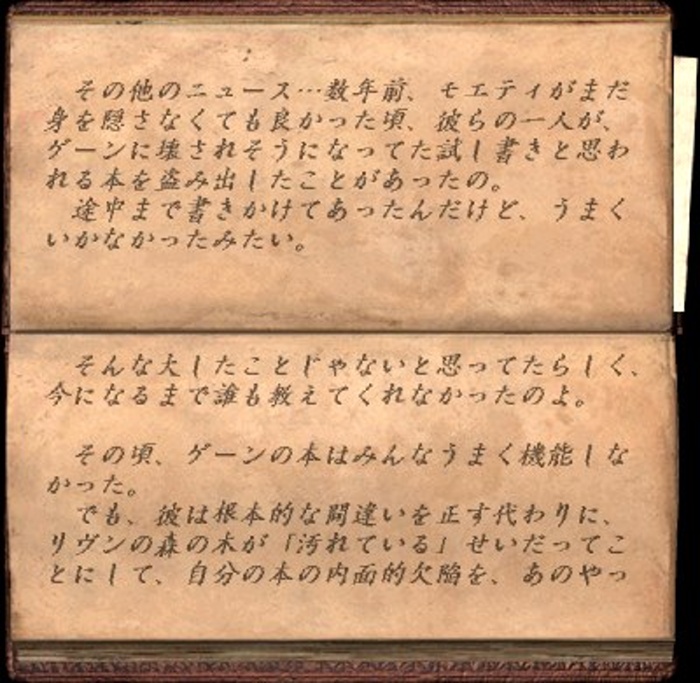 その他のニュース…数年前、モエティがまだ
身を隠さなくても良かった頃、彼らの一人が、
ゲーンに壊されそうになってた試し書きと思わ
れる本を盗み出したことがあったの。
途中まで書きかけてあったんだけど、うまく
いかなかったみたい。
そんな大したことじゃないと思ってたらしく、
今になるまで誰も教えてくれなかったのよ。
その頃、ゲーンの本はみんなうまく機能しな
かった。
でも、彼は根本的な間違いを正す代わりに、
リヴンの森の木が「汚れている」せいだってこ
とにして、自分の本の内面的欠陥を、あのやっ